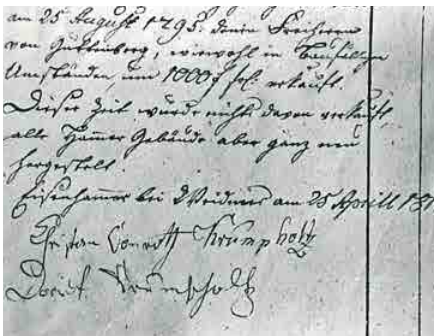 am 25 August 1795. denen Freiherrn
von Guttenberg, wiewohl in baufälligen
Umständen, um 1000 f frl. verkauft.
Dieser Zeit wurde nichts davon verkauft,
alle Hammer Gebäude aber ganz neu
hergestelt.
Eisenhammer bei Weidmes am 25 Aprill
Christan Conrath Krumpholtz
Krumholtz